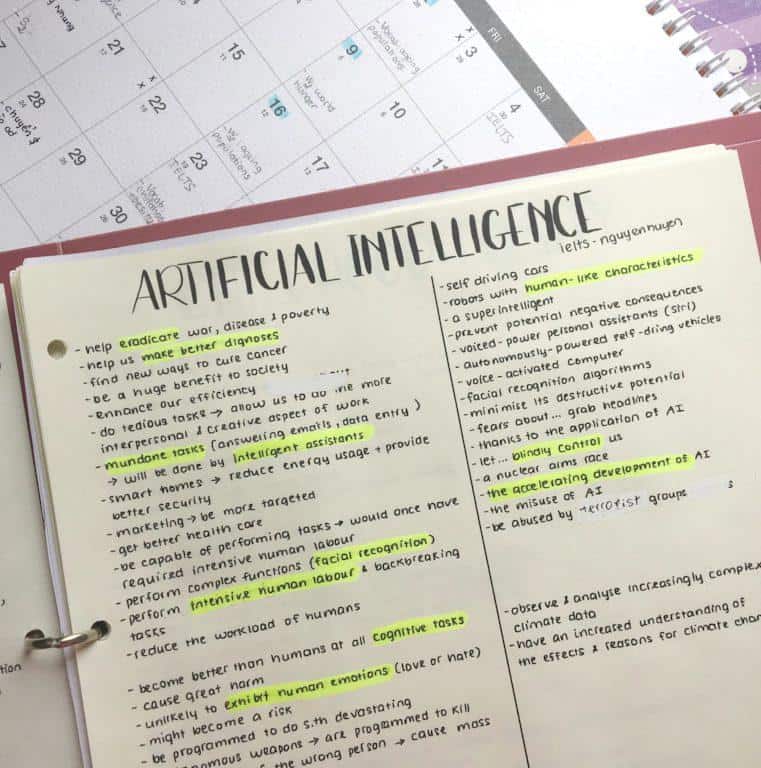 FRI
SAT
21
15
9
Vocab ageing
populations
3
28
22
16
W2 world
hunger
10
4
IELTS
29
23
IELTS
W2 ageing
populations
17
11
30
Vocab
ARTIFICIAL INTELLIGENCE
ielts - nguyenhuyen
- help eradicate war, disease & poverty
- help us make better dignoses
- find new ways to cure cancer
- be a huge benefit to society
- enhance our efficiency
- do tedious tasks → allow us to do the more
interpersonal & creative aspect of work
- mundane tasks (answering emails, data entry)
→ will be done by intelligent assistants
- smart homes → reduce energy usage + provide
better security
- marketing → be more targeted
- get better health care
- be capable of performing tasks → would once have
required intensive human labour
- perform complex functions (facial recognition)
- perform intensive human labour & backbreaking
tasks
- reduce the workload of humans
- become better than humans at all cognitive tasks
- cause great harm
- unlikely to exhibit human emotions (love or hate)
- might become a risk
- be programmed to do s.th devastating
nomous weapons → are programmed to kill
the wrong person → cause mass
- self driving cars
- robots with human-like characteristics
- a superintelligent
- prevent potential negative consequences
- voiced-power personal assistants (Siri)
- autonomously-powered self-driving vehicles
- voice-activated computer
- facial recognition algorithms
- minimise its destructive potential
- fears about... grab headlines
- thanks to the application of AI
- let... blindly control us
- a nuclear arms race
- the accelerating development of AI
- the misuse of AI
- be abused by terrorist groups
- observe & analyse increasingly complex
climate data
- have an increased understanding of
the effects & reasons for climate chan